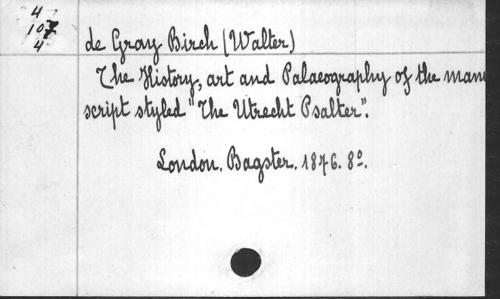 4
107
4
de Gray Birch (Walter)
The History, art and Palaeography of the manu
script styled "The Utrecht Psalter".
London. Bagster. 1876. 8º.